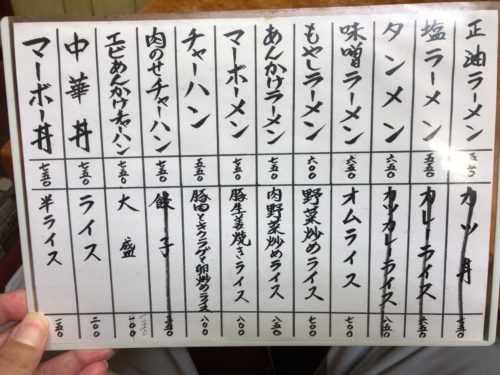 正油ラーメン 五五〇
塩ラーメン 五五〇
タンメン 六五〇
味噌ラーメン 六五〇
もやしラーメン 六〇〇
あんかけラーメン 七五〇
マーボーメン 七五〇
チャーハン 五五〇
肉のせチャーハン 七五〇
エビあんかけチャーハン 七五〇
中華丼 七五〇
マーボー丼 七五〇
カツ丼 七五〇
カレーライス 六五〇
カツカレーライス 八五〇
オムライス 七〇〇
野菜炒めライス 七〇〇
肉野菜炒めライス 八五〇
豚生姜焼きライス 八〇〇
豚肉とキクラゲ卵炒めライス 八〇〇
餃子
大盛 一〇〇
ライス 二〇〇
半ライス 一五〇